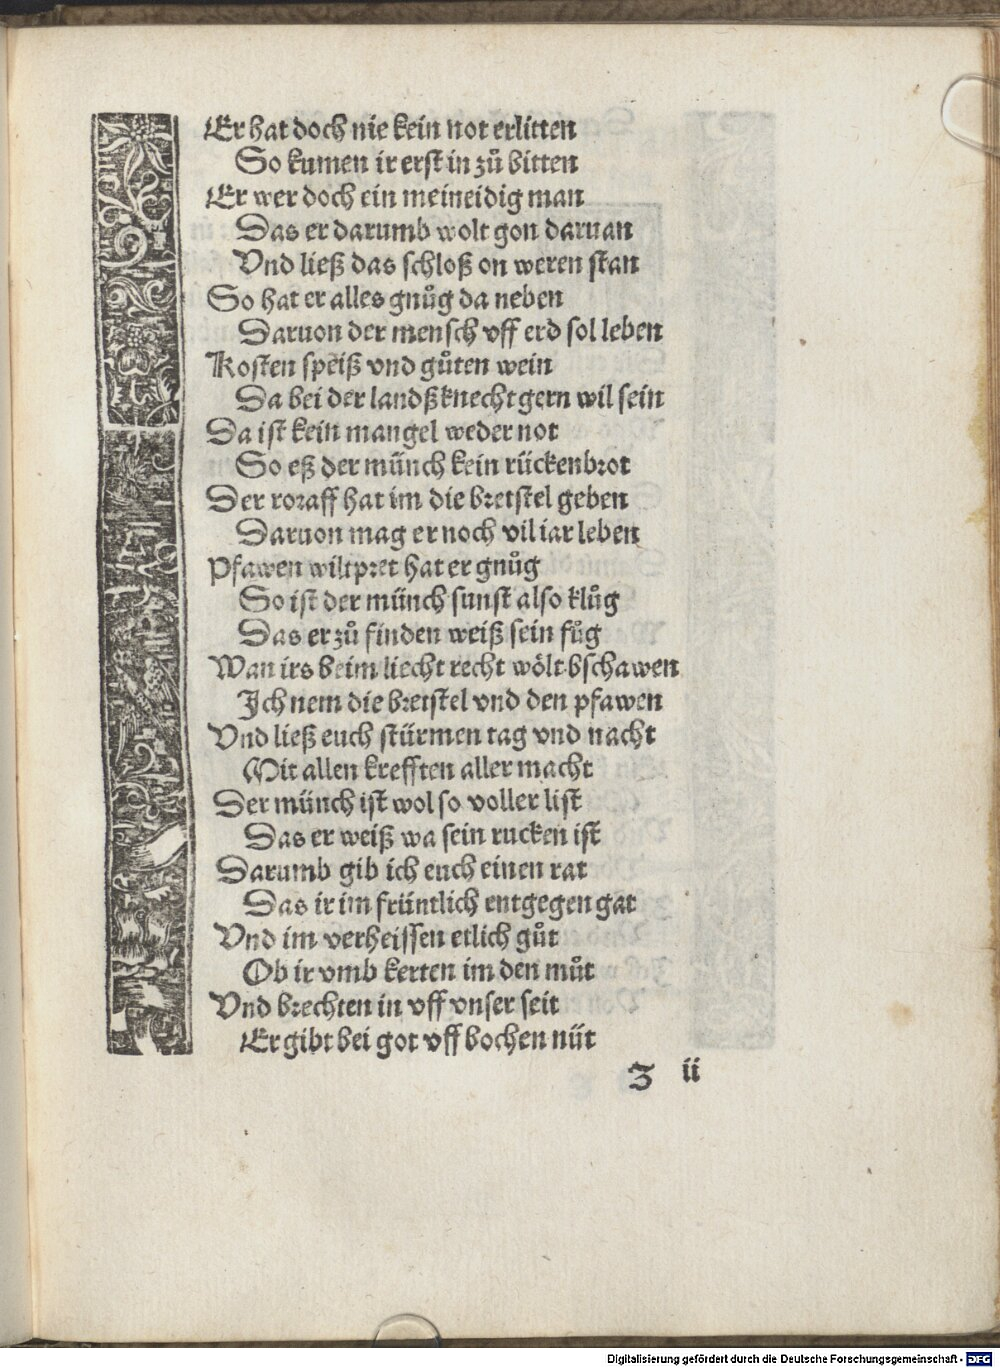 Er hat doch nie kein not erlitten
So kumen ir erst in zů bitten
Er wer doch ein meineidig man
Das er darumb wolt gon daruan
Vnd ließ das schloß on weren stan
So hat er alles gnůg da neben
Daruon der mensch vff erd sol leben
Kosten speiß vnd gůten wein
Da bei der landßknecht gern wil sein
Da ist kein mangel weder not
So eß der münch kein rückenbrot
Der roraff hat im die bretstel geben
Daruon mag er noch vil iar leben
Pfawen wiltpret hat er gnůg
So ist der münch sunst also klůg
Das er zů finden weiß sein fůg
Wan irs beim liecht recht wölt bschawen
Ich nem die bretstel vnd den pfawen
Vnd ließ euch stürmen tag vnd nacht
Mit allen krefften aller macht
Der münch ist wol so voller list
Das er weiß wa sein rucken ist
Darumb gib ich euch einen rat
Das ir im früntlich entgegen gat
Vnd im verheissen etlich gůt
Ob ir vmb kerten im den můt
Vnd brechten in vff vnser seit
Er gibt bei got vff bochen nüt
Z ii
Digitalisierung gefördert durch die Deutsche Forschungsgemeinschaft - DFG